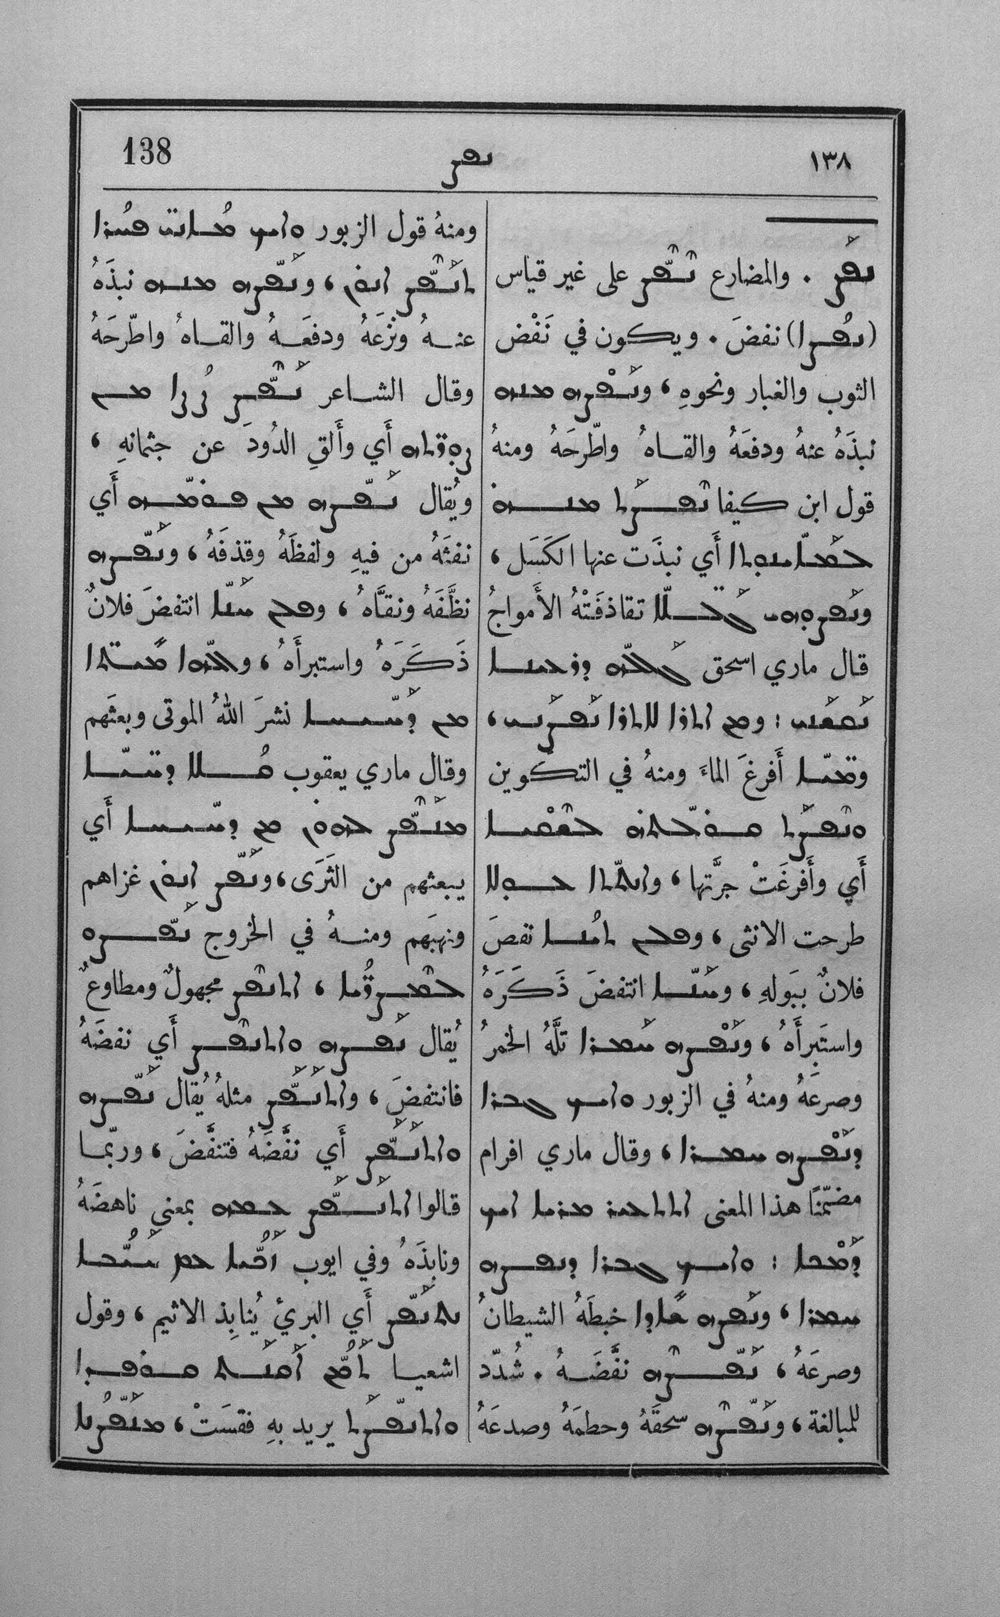 ١٣٨ ܢܦܨ 138
ܢܦܰܨ . والمضارع ܢܶܦܽܨ على غير قياس
(ܢܦܳܨܐ) نفضَ . ويكون في نَفْض
الثوب والغبار ونحوهِ ، وܢܰܦܨܶܗ ܡܢܗ
نبذَهُ عنهُ ودفعَهُ والقاهُ واطّرحَهُ ومنهُ
قول ابن كيفا ܢܶܦܨܰܬ ܡܢܗ̇
أَي نبذَت عنها الكَسَل ،
وܢܰܦܨܘܗܝ ܓܰܠܠܐ تقاذفَتْهُ الأَمواجُ
قال ماري اسحق
: ܘܡܢ ܐܬܪܐ ܠܐܬܪܐ ܢܦܨܢܝ ،
وܡܝܐ أَفرغَ الماءَ ومنهُ في التكوين
ܘܢܶܦܨܰܬ ܩܘܠܬܗ̇ ܒܫܩܝܐ
أَي وأَفرغَتْ جرَّتها ، وܐܢܬܬܐ ܥܘܠܐ
طرحت الانثى ، وܦܠܢ ܬܝܢܐ نفصَ
فلانٌ ببَولهِ ، انتفضَ ذَكَرَهُ
واستَبرأَهُ ، وܢܰܦܨܶܗ ܚܡܪܐ تلَّهُ الخمرُ
وصرعَهُ ومنهُ في الزبور ܘܐܝܟ ܓܒܪܐ
ܕܢܰܦܨܶܗ ܚܡܪܐ ، وقال ماري افرام
مضمّنًا هذا المعنى ܐܬܬܥܝܪ ܡܪܝܐ ܐܝܟ
ܕܡܟܐ : ܘܐܝܟ ܓܒܪܐ ܕܢܦܨܗ
ܚܡܪܐ ، وܢܰܦܨܶܗ ܫܐܕܐ خبطَهُ الشيطانُ
وصرعَهُ ، ܢܰܦܨܶܗ نفَّضَهُ . شُدّد
للمبالغة ، وܢܰܦܨܶܗ سحقَهُ وحطمَهُ وصدعَهُ
ومنهُ قول الزبور ܘܐܝܟ ܡܐܢ̈ܝ ܦܚܪܐ
ܬܢܰܦܨ ܐܢܘܢ ، وܢܰܦܨܶܗ ܡܢܗ نبذَهُ
عنهُ ونزعَهُ ودفعَهُ والقاهُ واطّرحَهُ
وقال الشاعر ܢܰܦܨ ܡܢ
أَي وأَلقِ الدُودَ عن جثمانهِ ،
ويُقال ܢܰܦܨܶܗ ܡܢ ܦܘܡܗ أَي
نفثَهُ من فيهِ ولفظَهُ وقذفَهُ ، وܢܰܦܨܶܗ
نظَّفَهُ ونقَّاهُ ، وܦܠܢ انتفضَ فلانٌ
ذَكَرَهُ واستبرأَهُ ، وܐܠܗܐ ܡܝ̈ܬܐ
ܡܢ نشرَ اللهُ الموتى وبعثَهم
وقال ماري يعقوب
ܡܢܰܦܨ ܠܗܘܢ ܡܢ أَي
يبعثهم من الثَرَى ، وܢܰܦܨ ܐܢܘܢ غزاهم
ونهبَهم ومنهُ في الخروج ܢܰܦܨܘ
ܠܡܨܪ̈ܝܐ ، ܐܬܢܦܨ مجهولٌ ومطاوعٌ
يُقال ܢܰܦܨܶܗ ܘܐܬܢܦܨ أَي نفضَهُ
فانتفضَ ، وܐܬܢܰܦܨ مثلهُ يُقال ܢܰܦܨܶܗ
ܘܐܬܢܰܦܨ أَي نفَّضَهُ فتنفَّضَ ، وربّما
قالوا ܐܬܢܰܦܨ ܥܡܗ بمعنى ناهضَهُ
ونابذَهُ وفي ايوب
أَي البريُ يُنابِذ الاثيم ، وقول
اشعيا
ܘܐܬܢܰܦܨܰܬ يريد بهِ فقسَتْ ،